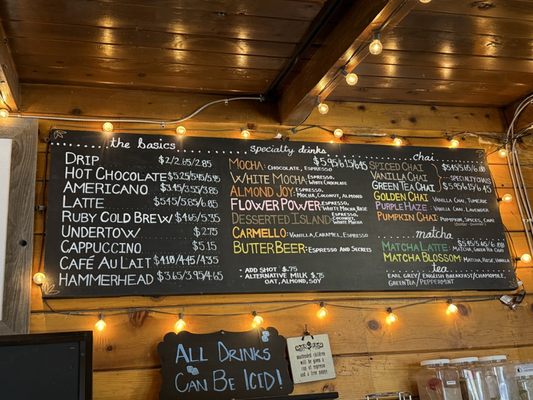 the basics
DRIP $2/2.65/2.85
HOT CHOCOLATE $5.25/5.95/6.95
AMERICANO $3.45/3.55/3.85
LATTE $5.45/5.85/6.85
RUBY COLD BREW $4.65/5.35
UNDERTOW $2.75
CAPPUCCINO $5.15
CAFÉ AU LAIT $4.18/4.45/4.75
HAMMERHEAD $3.65/3.95/4.65
specialty drinks
$5.95/6.45
MOCHA: CHOCOLATE, ESPRESSO
WHITE MOCHA: ESPRESSO, WHITE CHOCOLATE
ALMOND JOY: ESPRESSO,
FLOWER POWER: ESPRESSO,
DESSERTED ISLAND: ESPRESSO,
CARMELLO: ESPRESSO,
BUTTERBEER: ESPRESSO AND SECRETS
• ADD SHOT $.75
• ALTERNATIVE MILK $.75
OAT, ALMOND, SOY
chai
SPICED CHAI
VANILLA CHAI
GREEN TEA CHAI
GOLDEN CHAI: VANILLA CHAI, TURMERIC
PURPLE HAZE: VANILLA CHAI, LAVENDER
PUMPKIN CHAI: PUMPKIN, SPICES, CHAI
matcha
MATCHA LATTE: MATCHA, GREEN TEA
MATCHA BLOSSOM: MATCHA, ROSE, VANILLA
tea
EARL GREY / ENGLISH BREAKFAST / CHAMOMILE
GREEN TEA / PEPPERMINT
ALL DRINKS
CAN BE ICED!
Unattended children
will be given